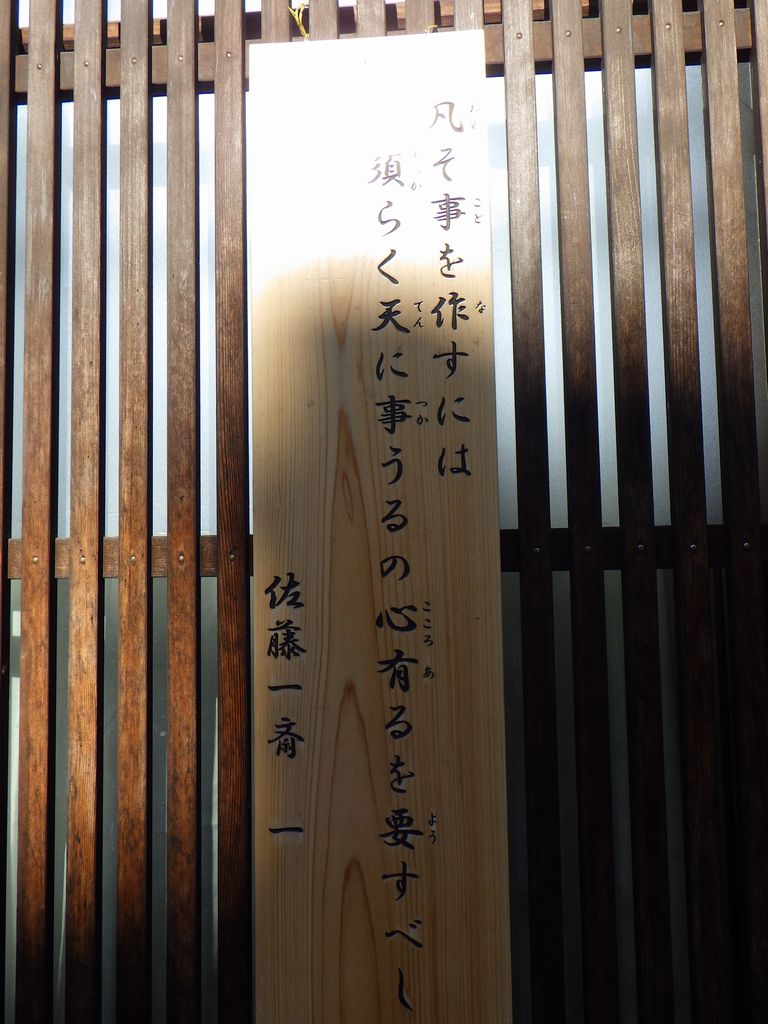 凡そ事を作すには
須らく天に事うるの心有るを要すべし
佐藤一斎 一